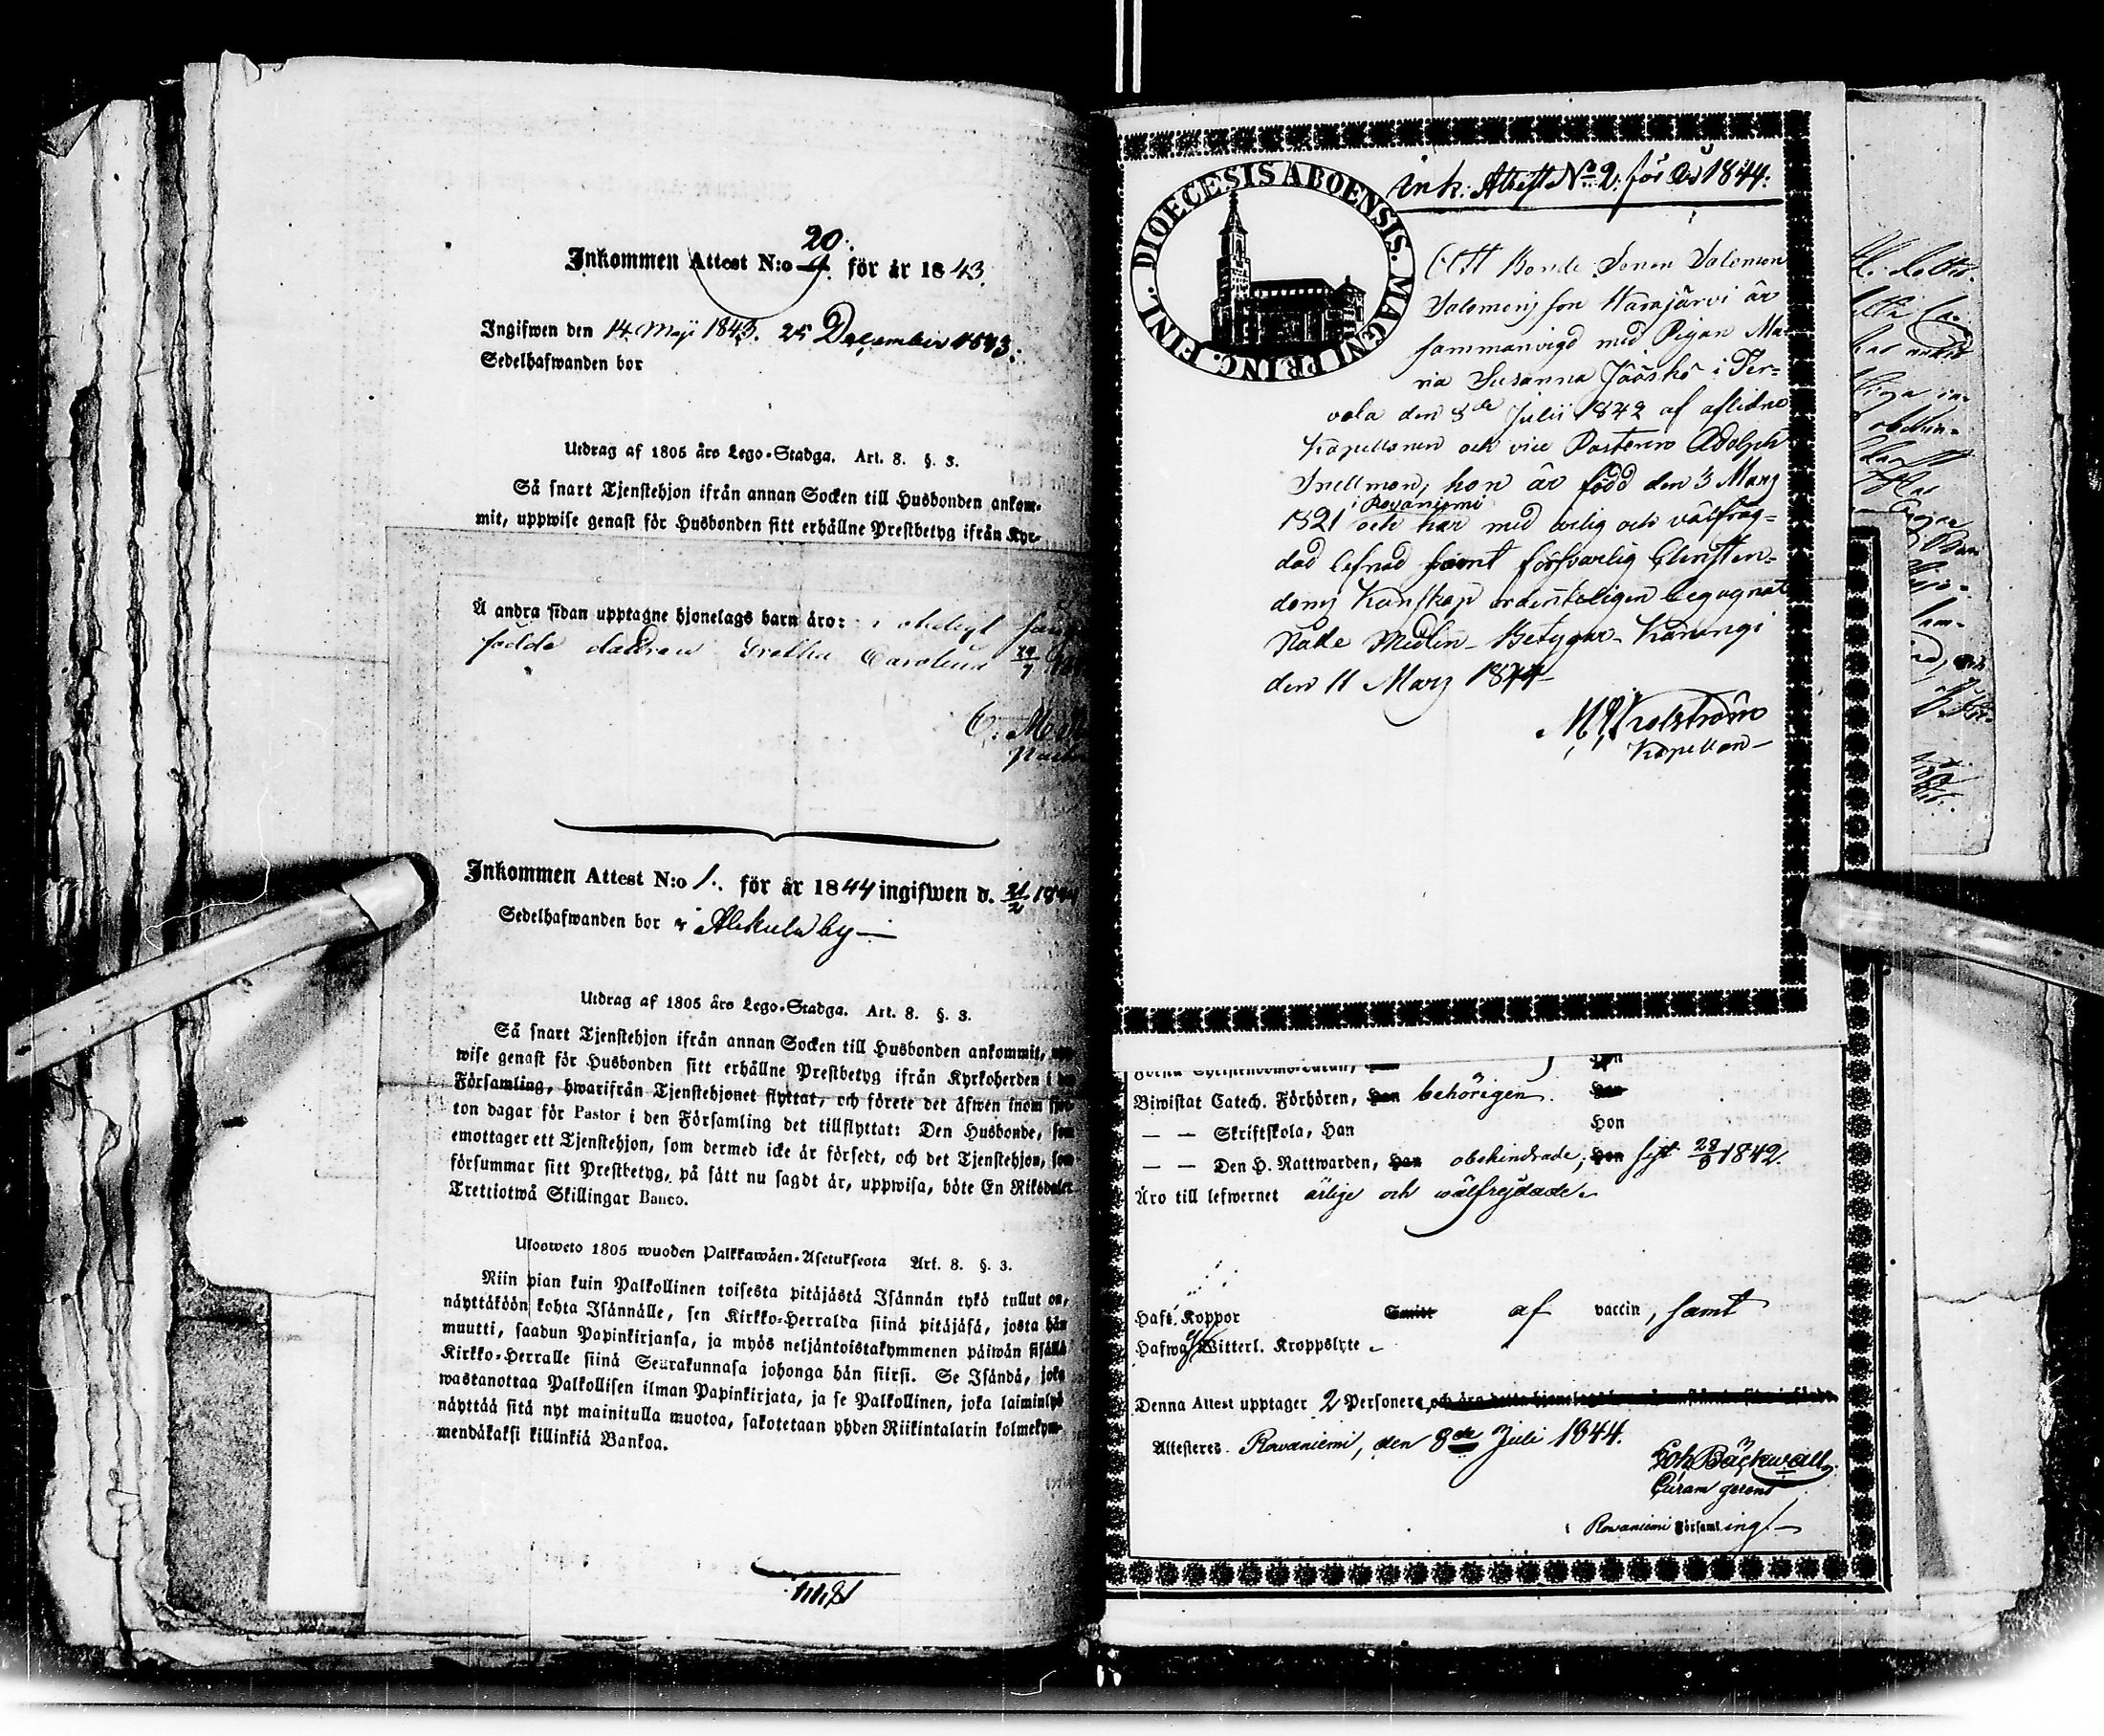 20.
Inkommen Attest N:o 9. för år 1843.
Ingifwen den 14 Maji 1843. 25 December 1843.
Sedelhafwanden bor
Utdrag af 1805 års Lego-Stadga. Art. 8. §. 3.
Så snart Tjenstehjon ifrån annan Socken till Husbonden ankom-
mit, uppwise genast för Husbonden sitt erhållne Prestbetyg ifrån Kyr-
Å andra sidan upptagne hjonelags barn äro:
födde dottren Gretha Carolina
Inkommen Attest N:o 1. för år 1844 ingifwen d. 21/2 1844
Sedelhafwanden bor i Alkula by
Utdrag af 1805 års Lego-Stadga. Art. 8. §. 3.
Så snart Tjenstehjon ifrån annan Socken till Husbonden ankommit, upp-
wise genast för Husbonden sitt erhållne Prestbetyg ifrån Kyrkoherden i den
Församling, hwarifrån Tjenstehjonet flyttat, och förete det äfwen inom fjor-
ton dagar för Pastor i den Församling det tillflyttat: Den Husbonde, som
emottager ett Tjenstehjon, som dermed icke är försedt, och det Tjenstehjon, som
försummar sitt Prestbetyg, på sätt nu sagdt är, uppwisa, böte En Riksdaler
Trettiotwå Skillingar Banco.
Ulosweto 1805 wuoden Palkkawäen-Asetuksesta Art. 8. §. 3.
Niin pian kuin Palkollinen toisesta pitäjästä Isännän tykö tullut on,
näyttäköön kohta Isännälle, sen Kirkko-Herralda siinä pitäjäsä, josta hän
muutti, saadun Papinkirjansa, ja myös neljäntoistakymmenen päiwän sisällä
Kirkko-Herralle siinä Seurakunnasa johonga hän siirsi. Se Isändä, joka
wastanottaa Palkollisen ilman Papinkirjata, ja se Palkollinen, joka laiminlyö
näyttää sitä nyt mainitulla muotoa, sakotetaan yhden Riikintalarin kolmekym-
mendäkaksi killinkiä Bankoa.
DIOECESIS ABOENSIS. MAGNI PRINC. FINL.
Ink: Attest No 2. för år 1844.
Att Bonde Sonen Salomon
Salomonsson Narajärvi är
sammanvigd med Pigan Ma-
ria Susanna Jääskö i Ter-
vola den 8de Julii 1842 af aflidne
Kapellanen och vice Pastoren Adolph
Snellman, hon är född den 3 Mars
i Rovaniemi
1821 och har med ärlig och välfräg-
dad lefnad samt försvarlig Christen-
doms Kunskap ordenteligen begagnat
Nåde Medlen - Betygar - Karungi
den 11 Mars 1844
Kapellan
Biwistat Catech. Förhören, Han behörigen. Hon
— — Skriftskola, Han Hon
— — Den H. Nattwarden, Han obehindrade; Hon sist 1842.
Äro till lefwernet ärlige och wälfrejdade.
Haft Koppor Smitt af vaccin, samt
Hafwa ej Witterl. Kroppslyte.
Denna Attest upptager 2 Personer,
Attesteres. Rowaniemi, den 8de Juli 1844.
Joh Bäckwall
Curam gerens
i Rowaniemi Församling